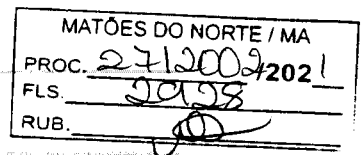 MATÕES DO NORTE / MA
PROC. 2712002/2021
FLS. 2928
RUB.